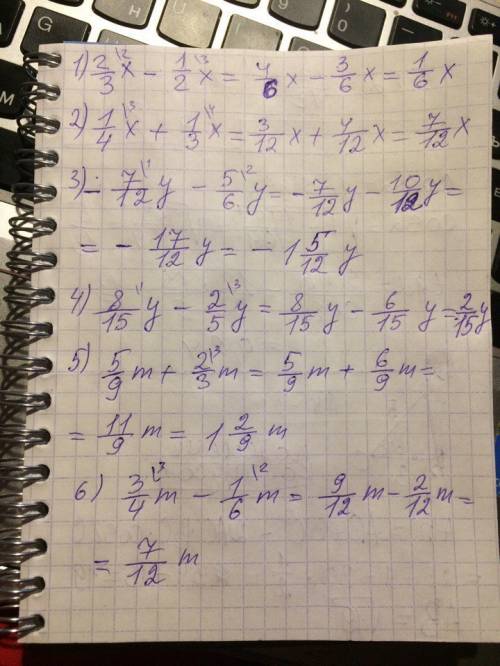 1) 2/3 \2 x - 1/2 \3 x = 4/6 x - 3/6 x = 1/6 x
2) 1/4 \3 x + 1/3 \4 x = 3/12 x + 4/12 x = 7/12 x
3) - 7/12 \1 y - 5/6 \2 y = - 7/12 y - 10/12 y =
= - 17/12 y = - 1 5/12 y
4) 8/15 \1 y - 2/5 \3 y = 8/15 y - 6/15 y = 2/15 y
5) 5/9 m + 2/3 \3 m = 5/9 m + 6/9 m =
= 11/9 m = 1 2/9 m
6) 3/4 \3 m - 1/6 \2 m = 9/12 m - 2/12 m =
= 7/12 m